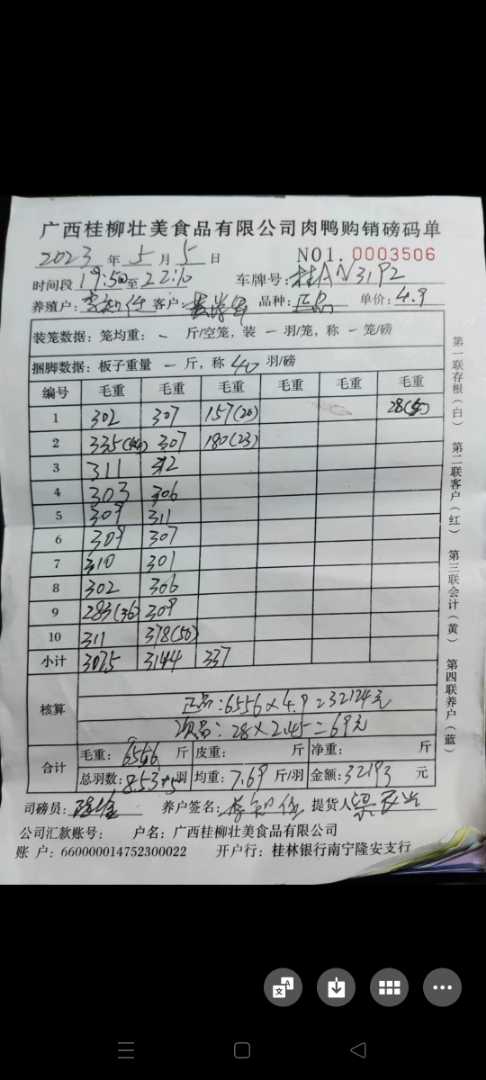 广西桂柳壮美食品有限公司肉鸭购销磅码单
2023 年 5 月 5 日 NO1. 0003506
时间段 19:50至22:10 车牌号:桂AN3192
养殖户: 客户: 品种: 正品 单价:4.9
装笼数据:笼均重: - 斤/空笼,装 - 羽/笼,称 - 笼/磅
捆脚数据:板子重量 - 斤,称 40 羽/磅
编号 毛重 毛重 毛重 毛重 毛重 毛重
1 302 307 157(20) 28(5)
2 335(44) 307 180(23)
3 311 312
4 303 306
5 309 311
6 309 307
7 310 301
8 302 306
9 283(36) 309
10 311 378(50)
小计 3075 3144 337
核算 正品:6556×4.9=32124元
次品:28×2.45=69元
合计 毛重: 6556 斤 皮重: 斤 净重: 斤
总羽数:853+5羽 均重:7.69 斤/羽 金额:32193 元
司磅员: 养户签名: 提货人
公司汇款账号: 户名:广西桂柳壮美食品有限公司
账 户:660000014752300022 开户行:桂林银行南宁隆安支行
第一联存根(白) 第二联客户(红) 第三联会计(黄) 第四联养户(蓝)